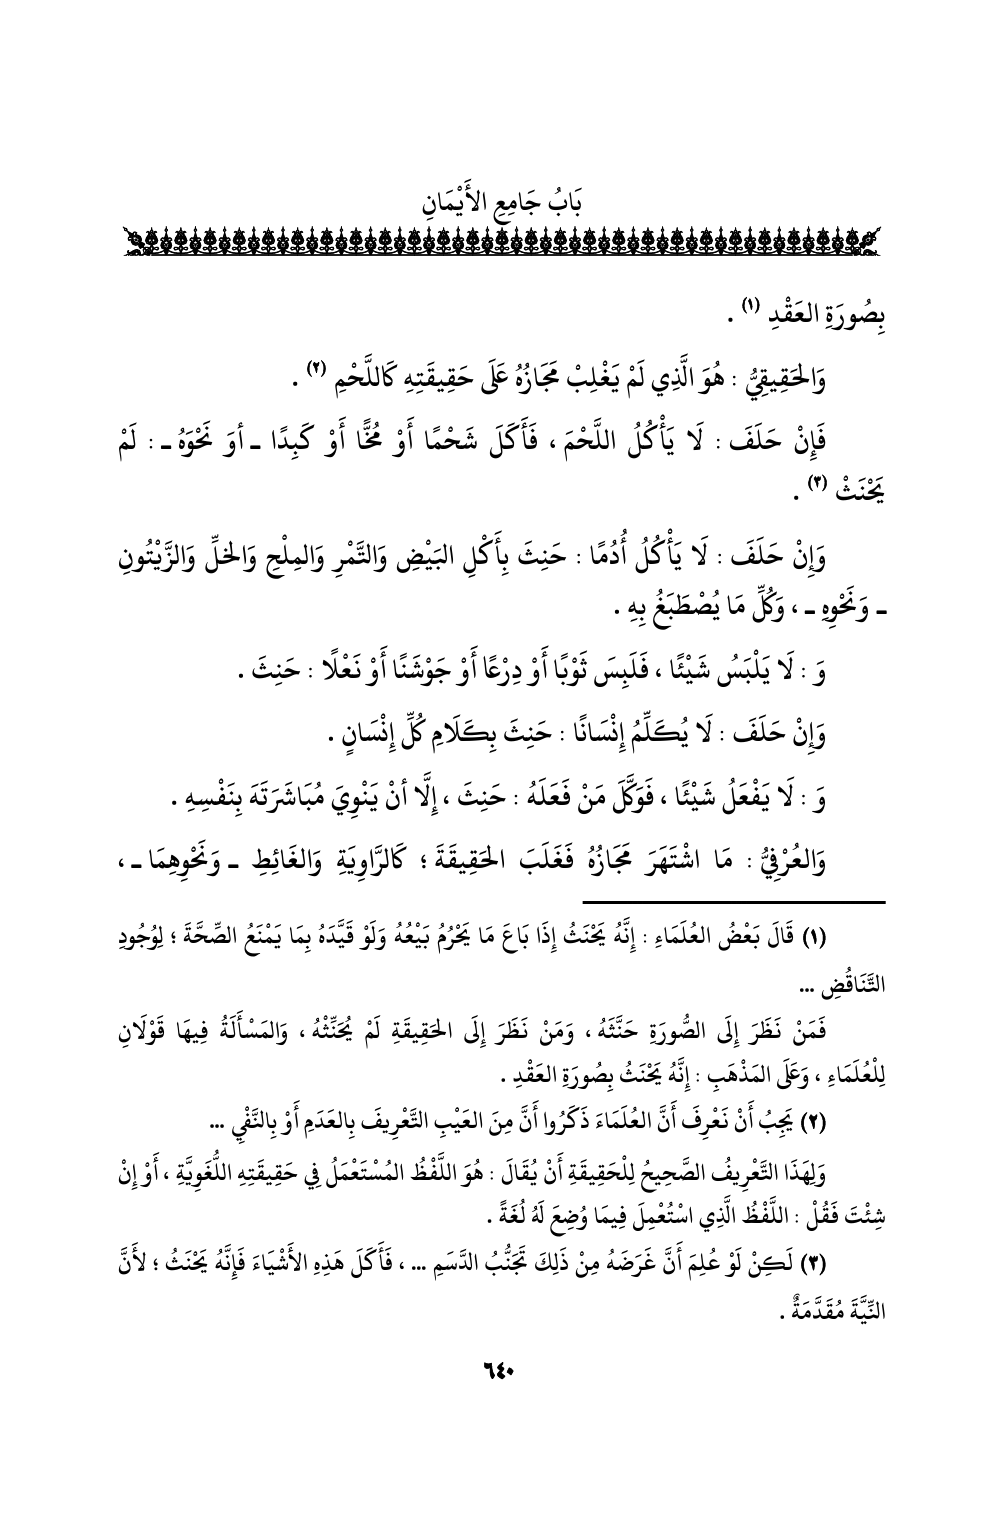 بَابُ جَامِعِ الأَيْمَانِ
بِصُورَةِ العَقْدِ (١) .
وَالحَقِيقِيُّ : هُوَ الَّذِي لَمْ يَغْلِبْ مَجَازُهُ عَلَى حَقِيقَتِهِ كَاللَّحْمِ (٢) .
فَإِنْ حَلَفَ : لَا يَأْكُلُ اللَّحْمَ ، فَأَكَلَ شَحْمًا أَوْ مُخًّا أَوْ كَبِدًا ـ أوَ نَحْوَهُ ـ : لَمْ
يَحْنَثْ (٣) .
وَإِنْ حَلَفَ : لَا يَأْكُلُ أُدُمًا : حَنِثَ بِأَكْلِ البَيْضِ وَالتَّمْرِ وَالمِلْحِ وَالخَلِّ وَالزَّيْتُونِ
ـ وَنَحْوِهِ ـ ، وَكُلِّ مَا يُصْطَبَغُ بِهِ .
وَ : لَا يَلْبَسُ شَيْئًا ، فَلَبِسَ ثَوْبًا أَوْ دِرْعًا أَوْ جَوْشَنًا أَوْ نَعْلًا : حَنِثَ .
وَإِنْ حَلَفَ : لَا يُكَلِّمُ إِنْسَانًا : حَنِثَ بِكَلَامِ كُلِّ إِنْسَانٍ .
وَ : لَا يَفْعَلُ شَيْئًا ، فَوَكَّلَ مَنْ فَعَلَهُ : حَنِثَ ، إِلَّا أنْ يَنْوِيَ مُبَاشَرَتَهَ بِنَفْسِهِ .
وَالعُرْفِيُّ : مَا اشْتَهَرَ مَجَازُهُ فَغَلَبَ الحَقِيقَةَ ؛ كَالرَّاوِيَةِ وَالغَائِطِ ـ وَنَحْوِهِمَا ـ ،
(١) قَالَ بَعْضُ العُلَمَاءِ : إِنَّهُ يَحْنَثُ إِذَا بَاعَ مَا يَحْرُمُ بَيْعُهُ وَلَوْ قَيَّدَهُ بِمَا يَمْنَعُ الصِّحَّةَ ؛ لِوُجُودِ
التَّنَاقُضِ ...
فَمَنْ نَظَرَ إِلَى الصُّورَةِ حَنَّثَهُ ، وَمَنْ نَظَرَ إِلَى الحَقِيقَةِ لَمْ يُحَنِّثْهُ ، وَالمَسْأَلَةُ فِيهَا قَوْلَانِ
لِلْعُلَمَاءِ ، وَعَلَى المَذْهَبِ : إِنَّهُ يَحْنَثُ بِصُورَةِ العَقْدِ .
(٢) يَجِبُ أَنْ نَعْرِفَ أَنَّ العُلَمَاءَ ذَكَرُوا أَنَّ مِنَ العَيْبِ التَّعْرِيفَ بِالعَدَمِ أَوْ بِالنَّفْيِ ...
وَلِهَذَا التَّعْرِيفُ الصَّحِيحُ لِلْحَقِيقَةِ أَنْ يُقَالَ : هُوَ اللَّفْظُ المُسْتَعْمَلُ فِي حَقِيقَتِهِ اللُّغَوِيَّةِ ، أَوْ إِنْ
شِئْتَ فَقُلْ : اللَّفْظُ الَّذِي اسْتُعْمِلَ فِيمَا وُضِعَ لَهُ لُغَةً .
(٣) لَكِنْ لَوْ عُلِمَ أَنَّ غَرَضَهُ مِنْ ذَلِكَ تَجَنُّبُ الدَّسَمِ ... ، فَأَكَلَ هَذِهِ الأَشْيَاءَ فَإِنَّهُ يَحْنَثُ ؛ لأَنَّ
النِّيَّةَ مُقَدَّمَةٌ .
٦٤٠